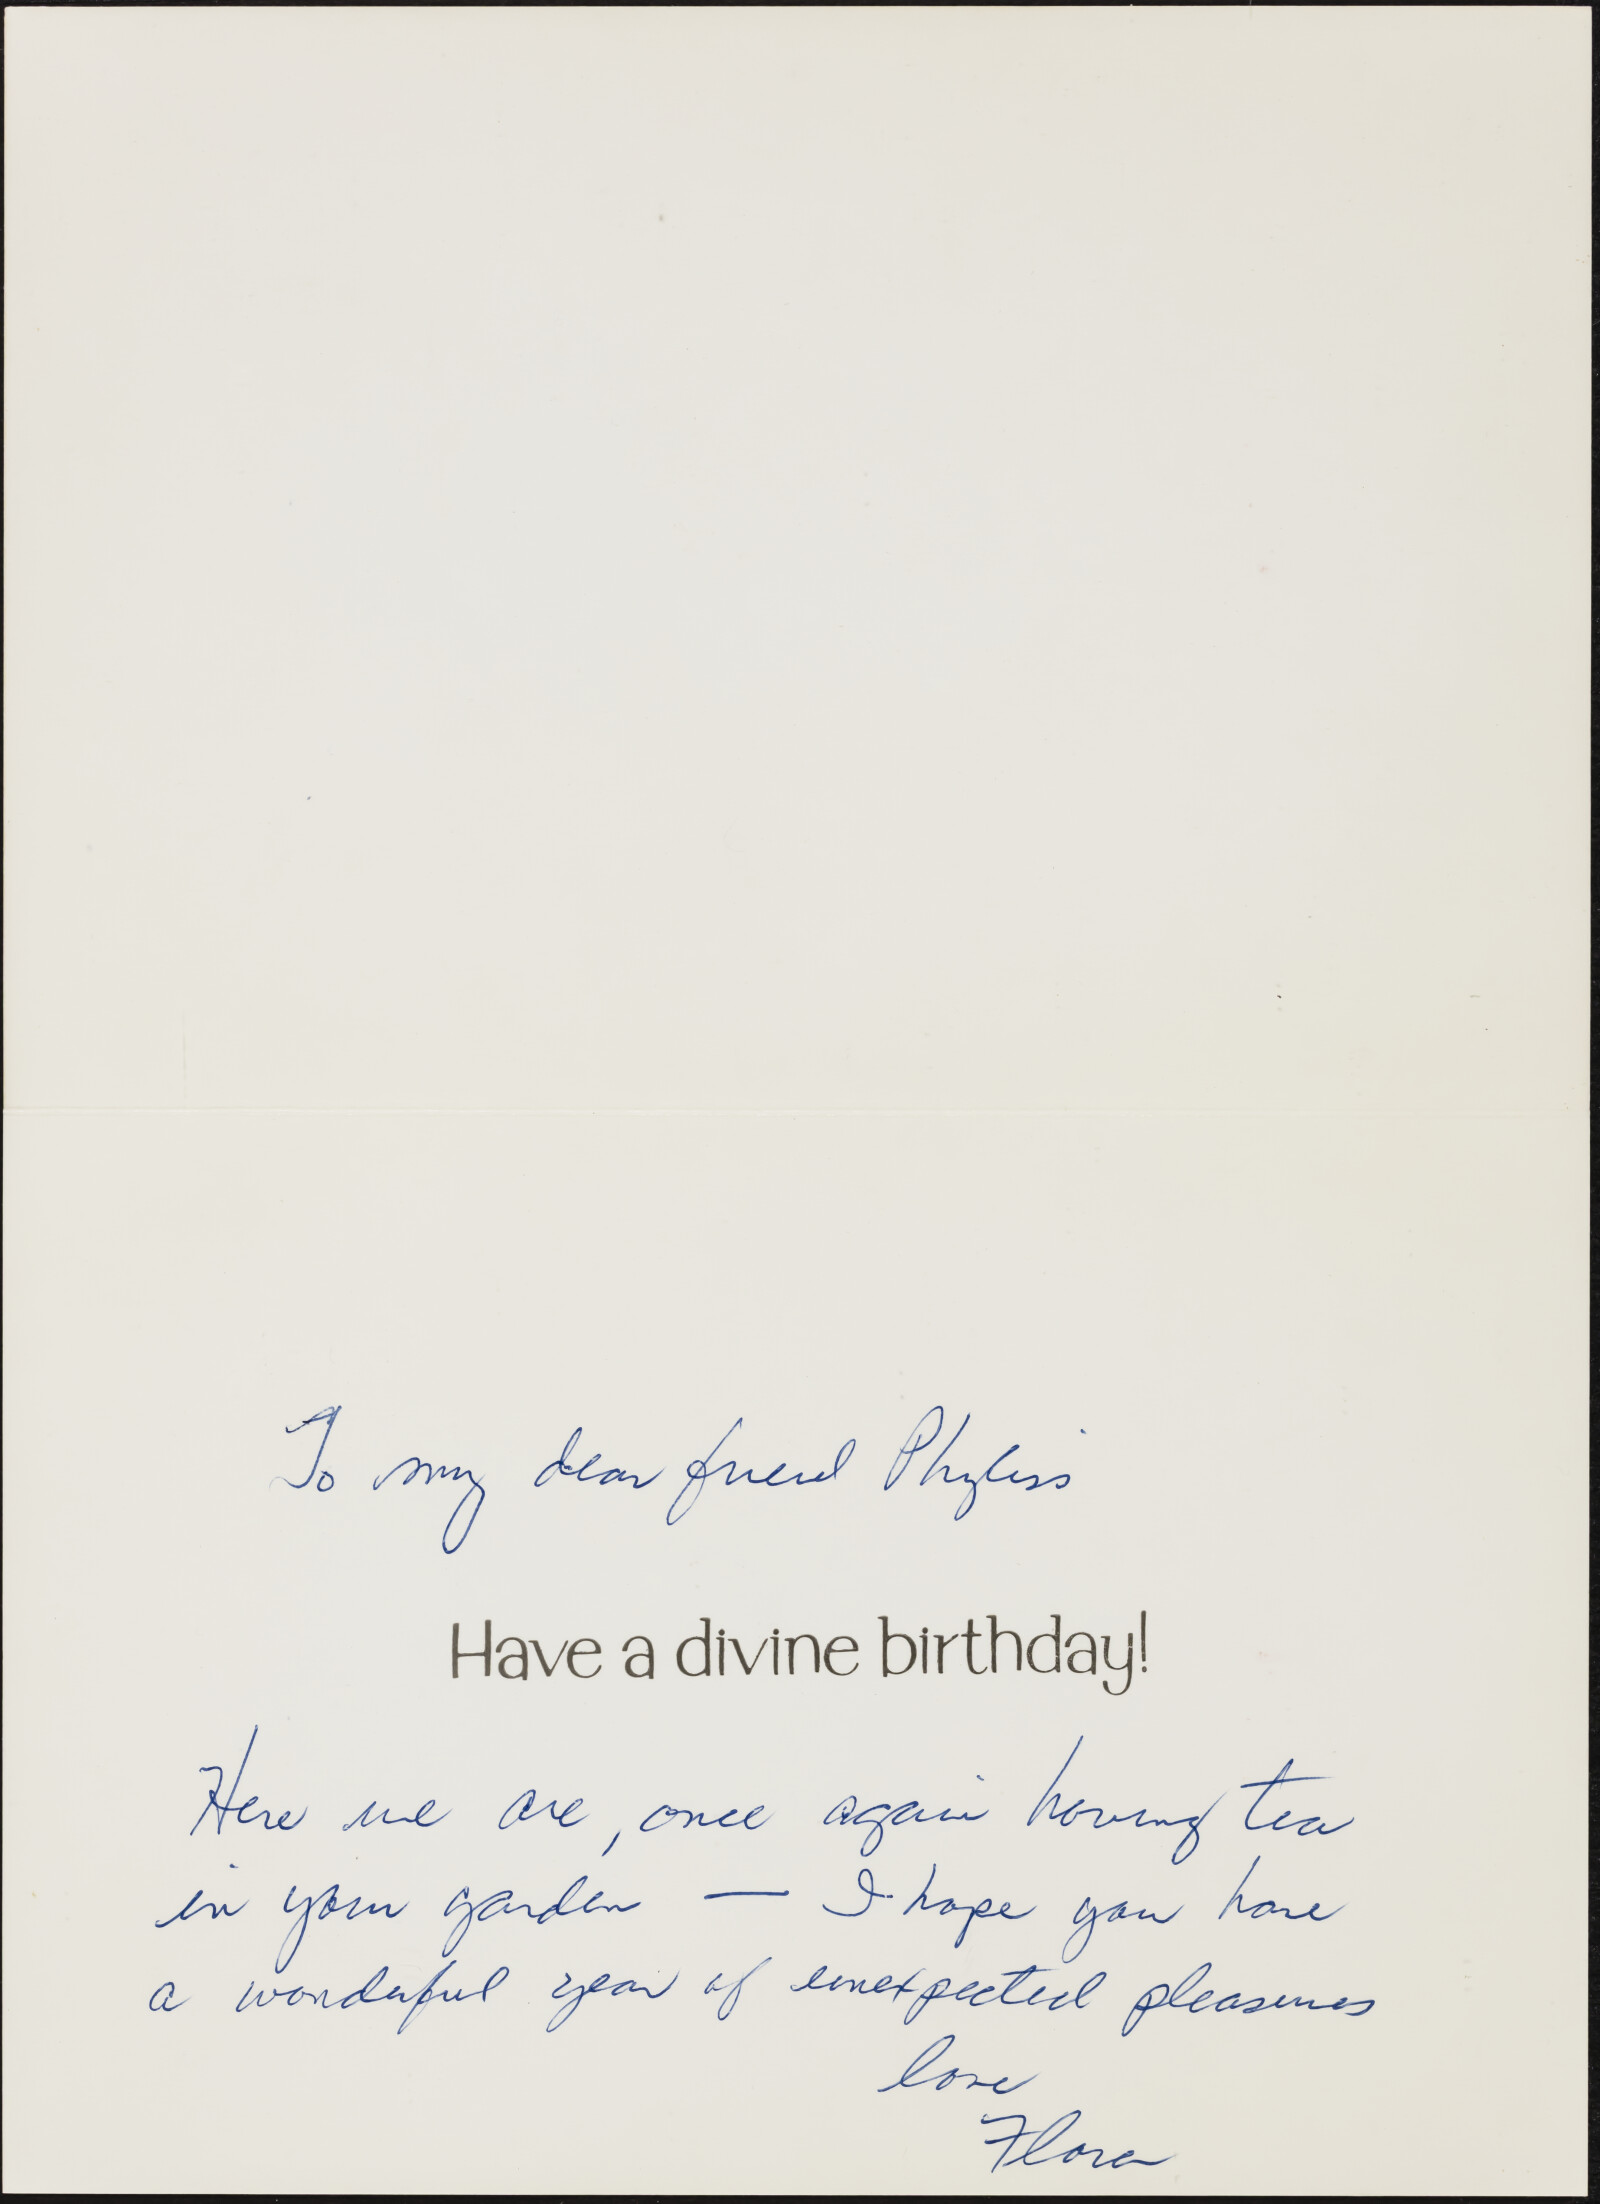 To my dear friend Phyliss
Have a divine birthday!
Here we are, once again having tea
in your garden — I hope you have
a wonderful year of unexpected pleasures
love
Flora